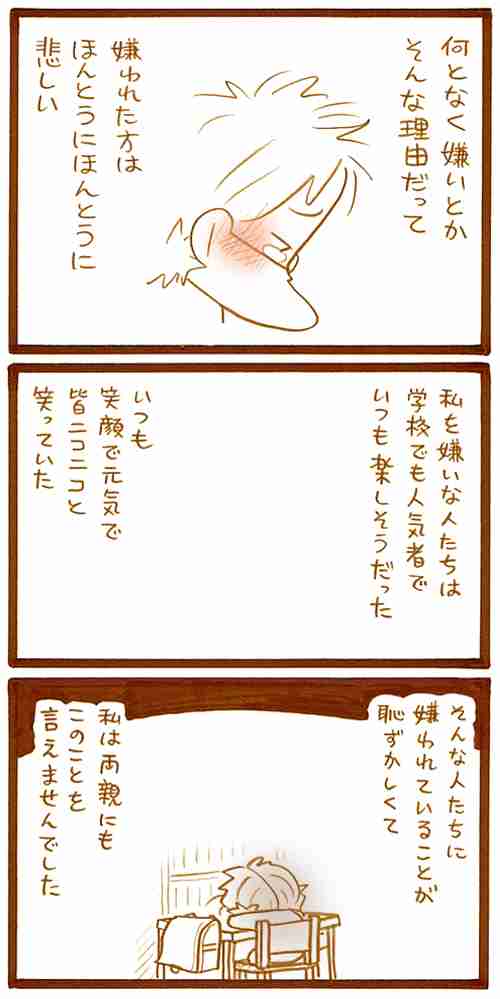 何となく嫌いとか
そんな理由だって
嫌われた方は
ほんとうにほんとうに
悲しい
私を嫌いな人たちは
学校でも人気者で
いつも楽しそうだった
いつも
笑顔で元気で
皆ニコニコと
笑っていた
そんな人たちに
嫌われていることが
恥ずかしくて
私は両親にも
このことを
言えませんでした